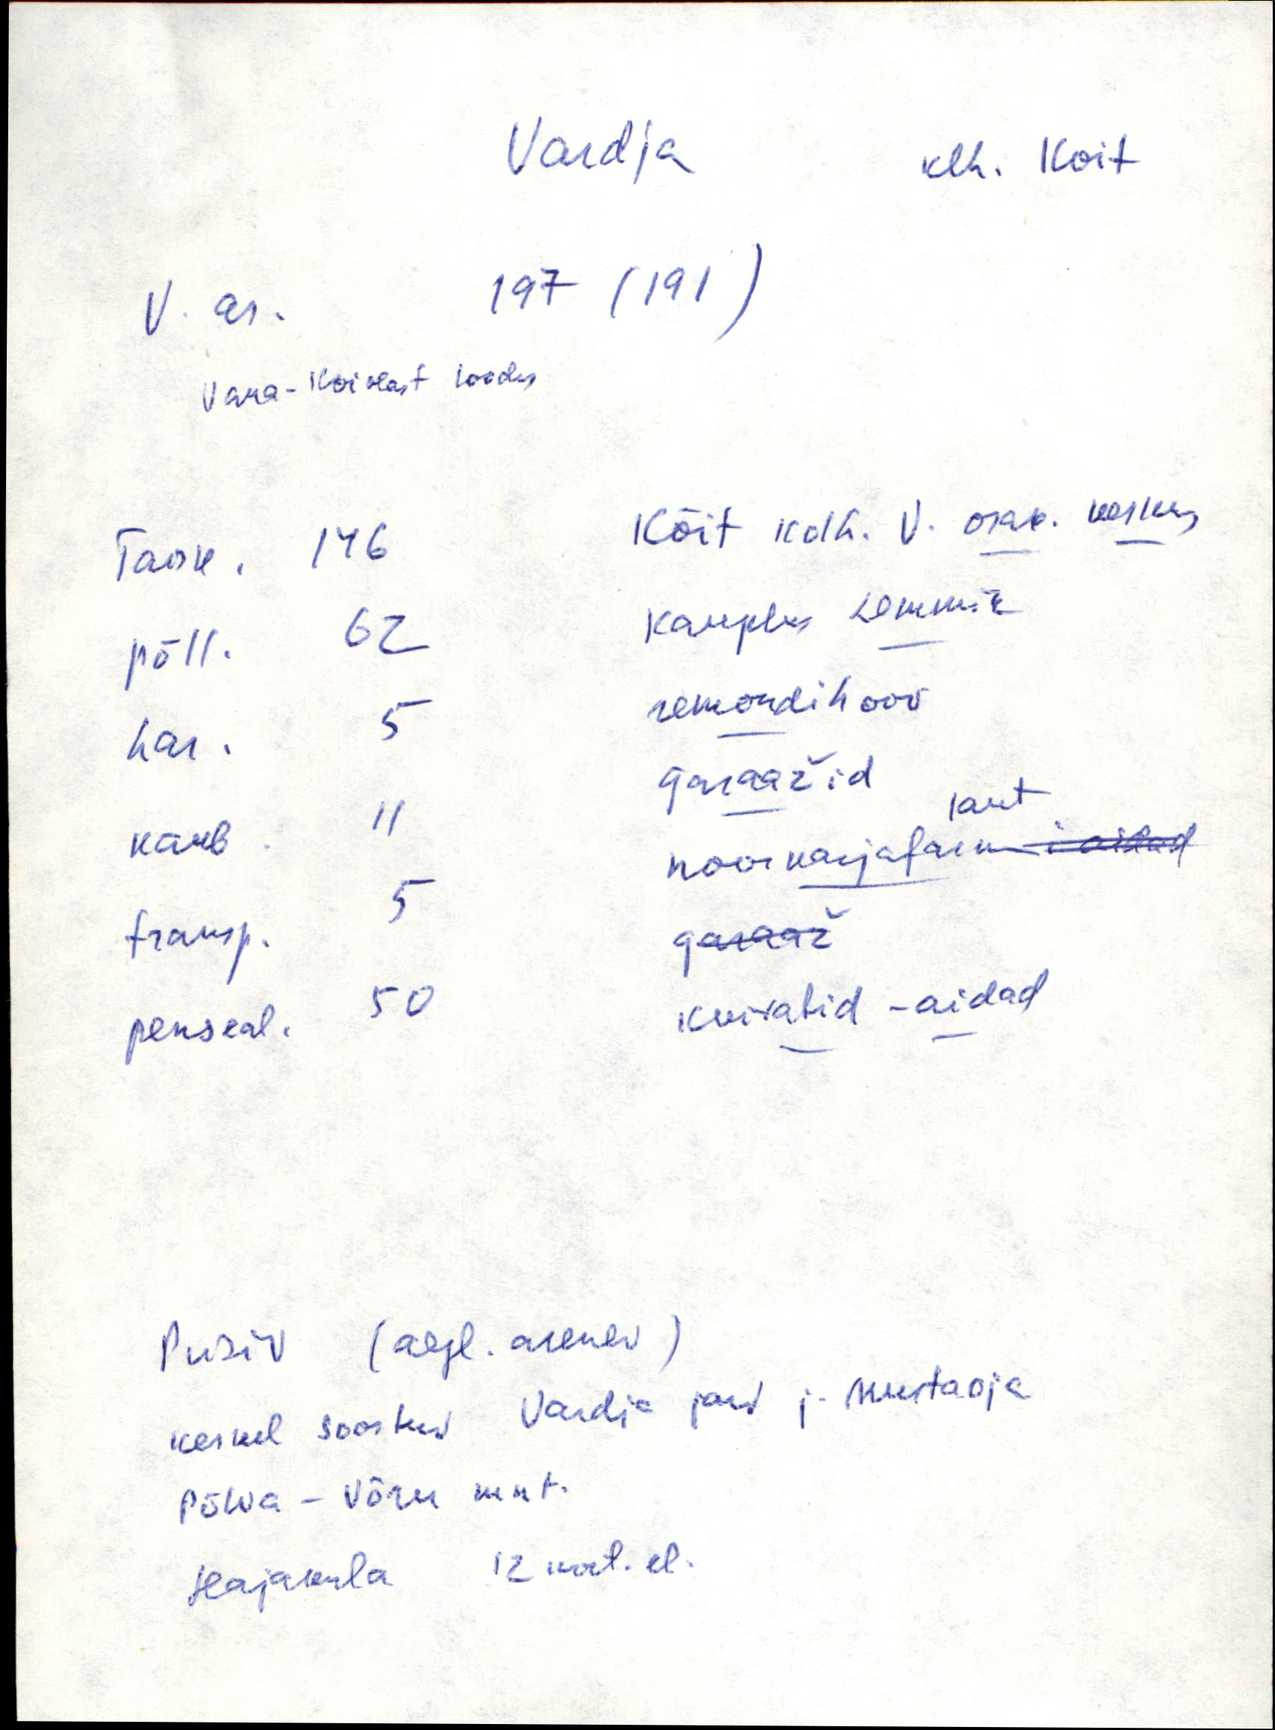 Vardja klh. Koit
V. as. 197 (191)
Vana-Koiolast loodes
Taosk. 146
põll. 62
har. 5
kaub 11
transp. 5
penseal. 50
Kõit kolh. V. osak. keskus
Kauplus Lemmik
remondihoov
garaažid
laut
noorkarjafarm i aidad
garaaž
kuivatid - aidad
Püsiv (aegl. arenev)
keskel soostuv Vardja järv j. Mustaoja
Põlva - Võru mnt.
Hajaküla 12 kort. el.